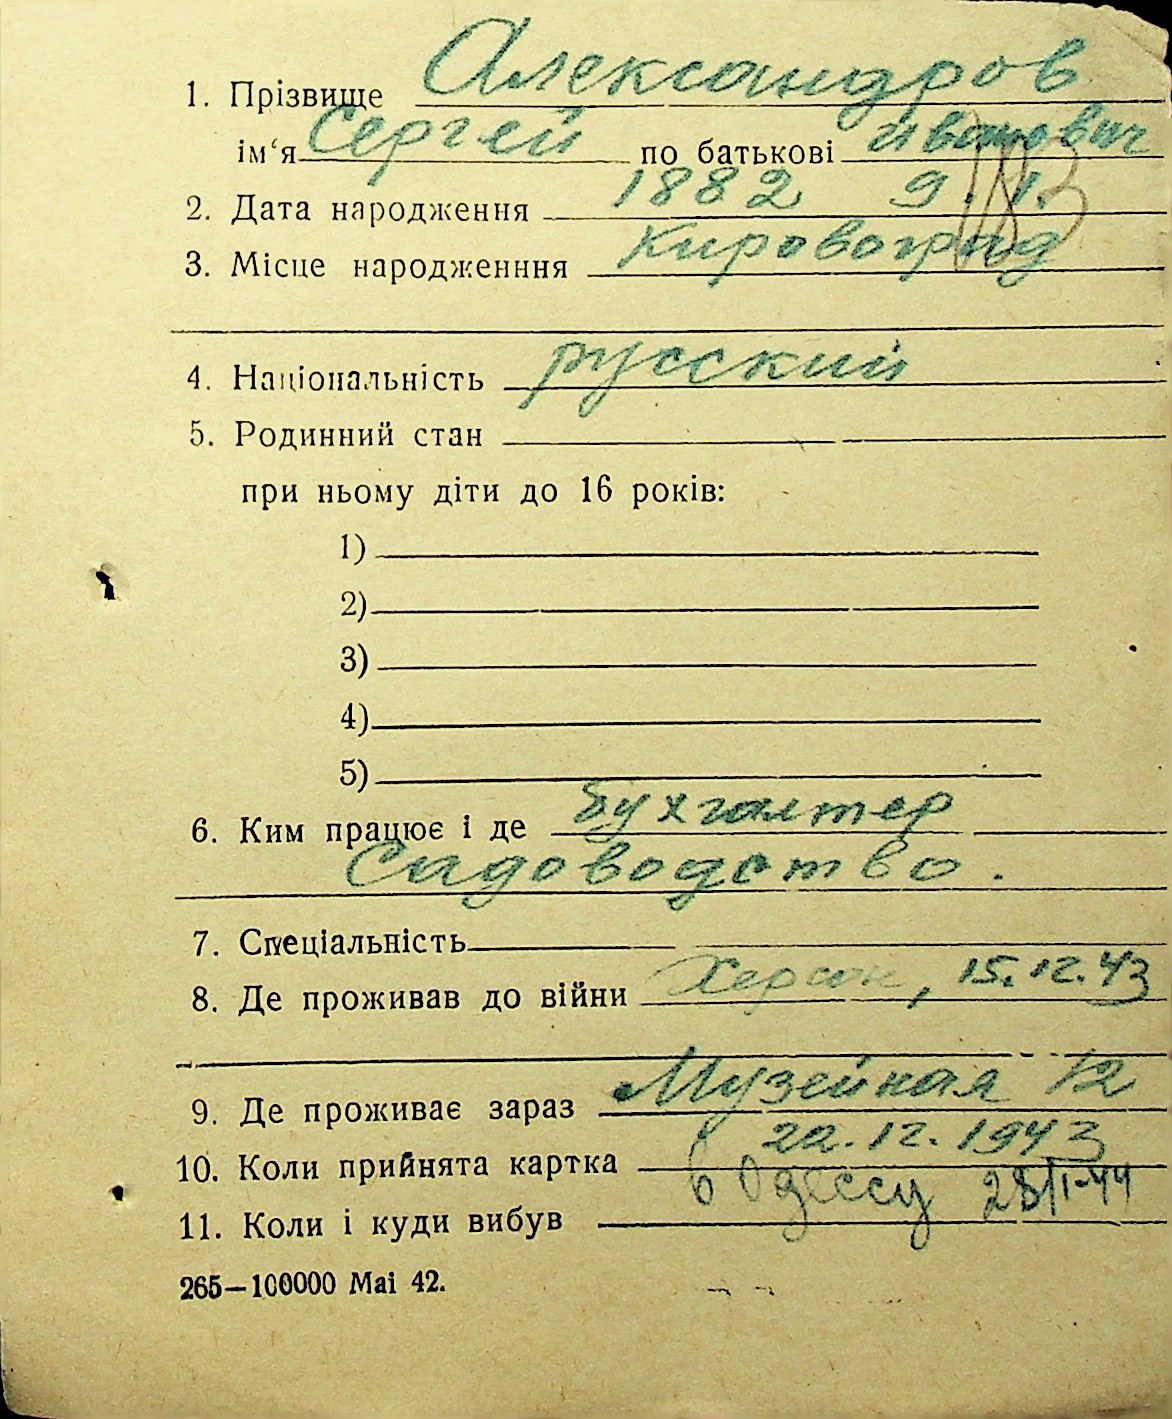 1. Прізвище Александров
ім'я Сергей по батькові Иванович
2. Дата народження 1882 9.1.
3. Місце народженння Кировоград
4. Національність русский
5. Родинний стан
при ньому діти до 16 років:
1)
2)
3)
4)
5)
6. Ким працює і де бухгалтер
Садоводство.
7. Спеціальність
8. Де проживав до війни Херсон, 15.12.43
9. Де проживає зараз Музейная 12
10. Коли прийнята картка 22.12.1943
11. Коли і куди вибув в Одессу 28/I-44
265—100000 Mai 42.